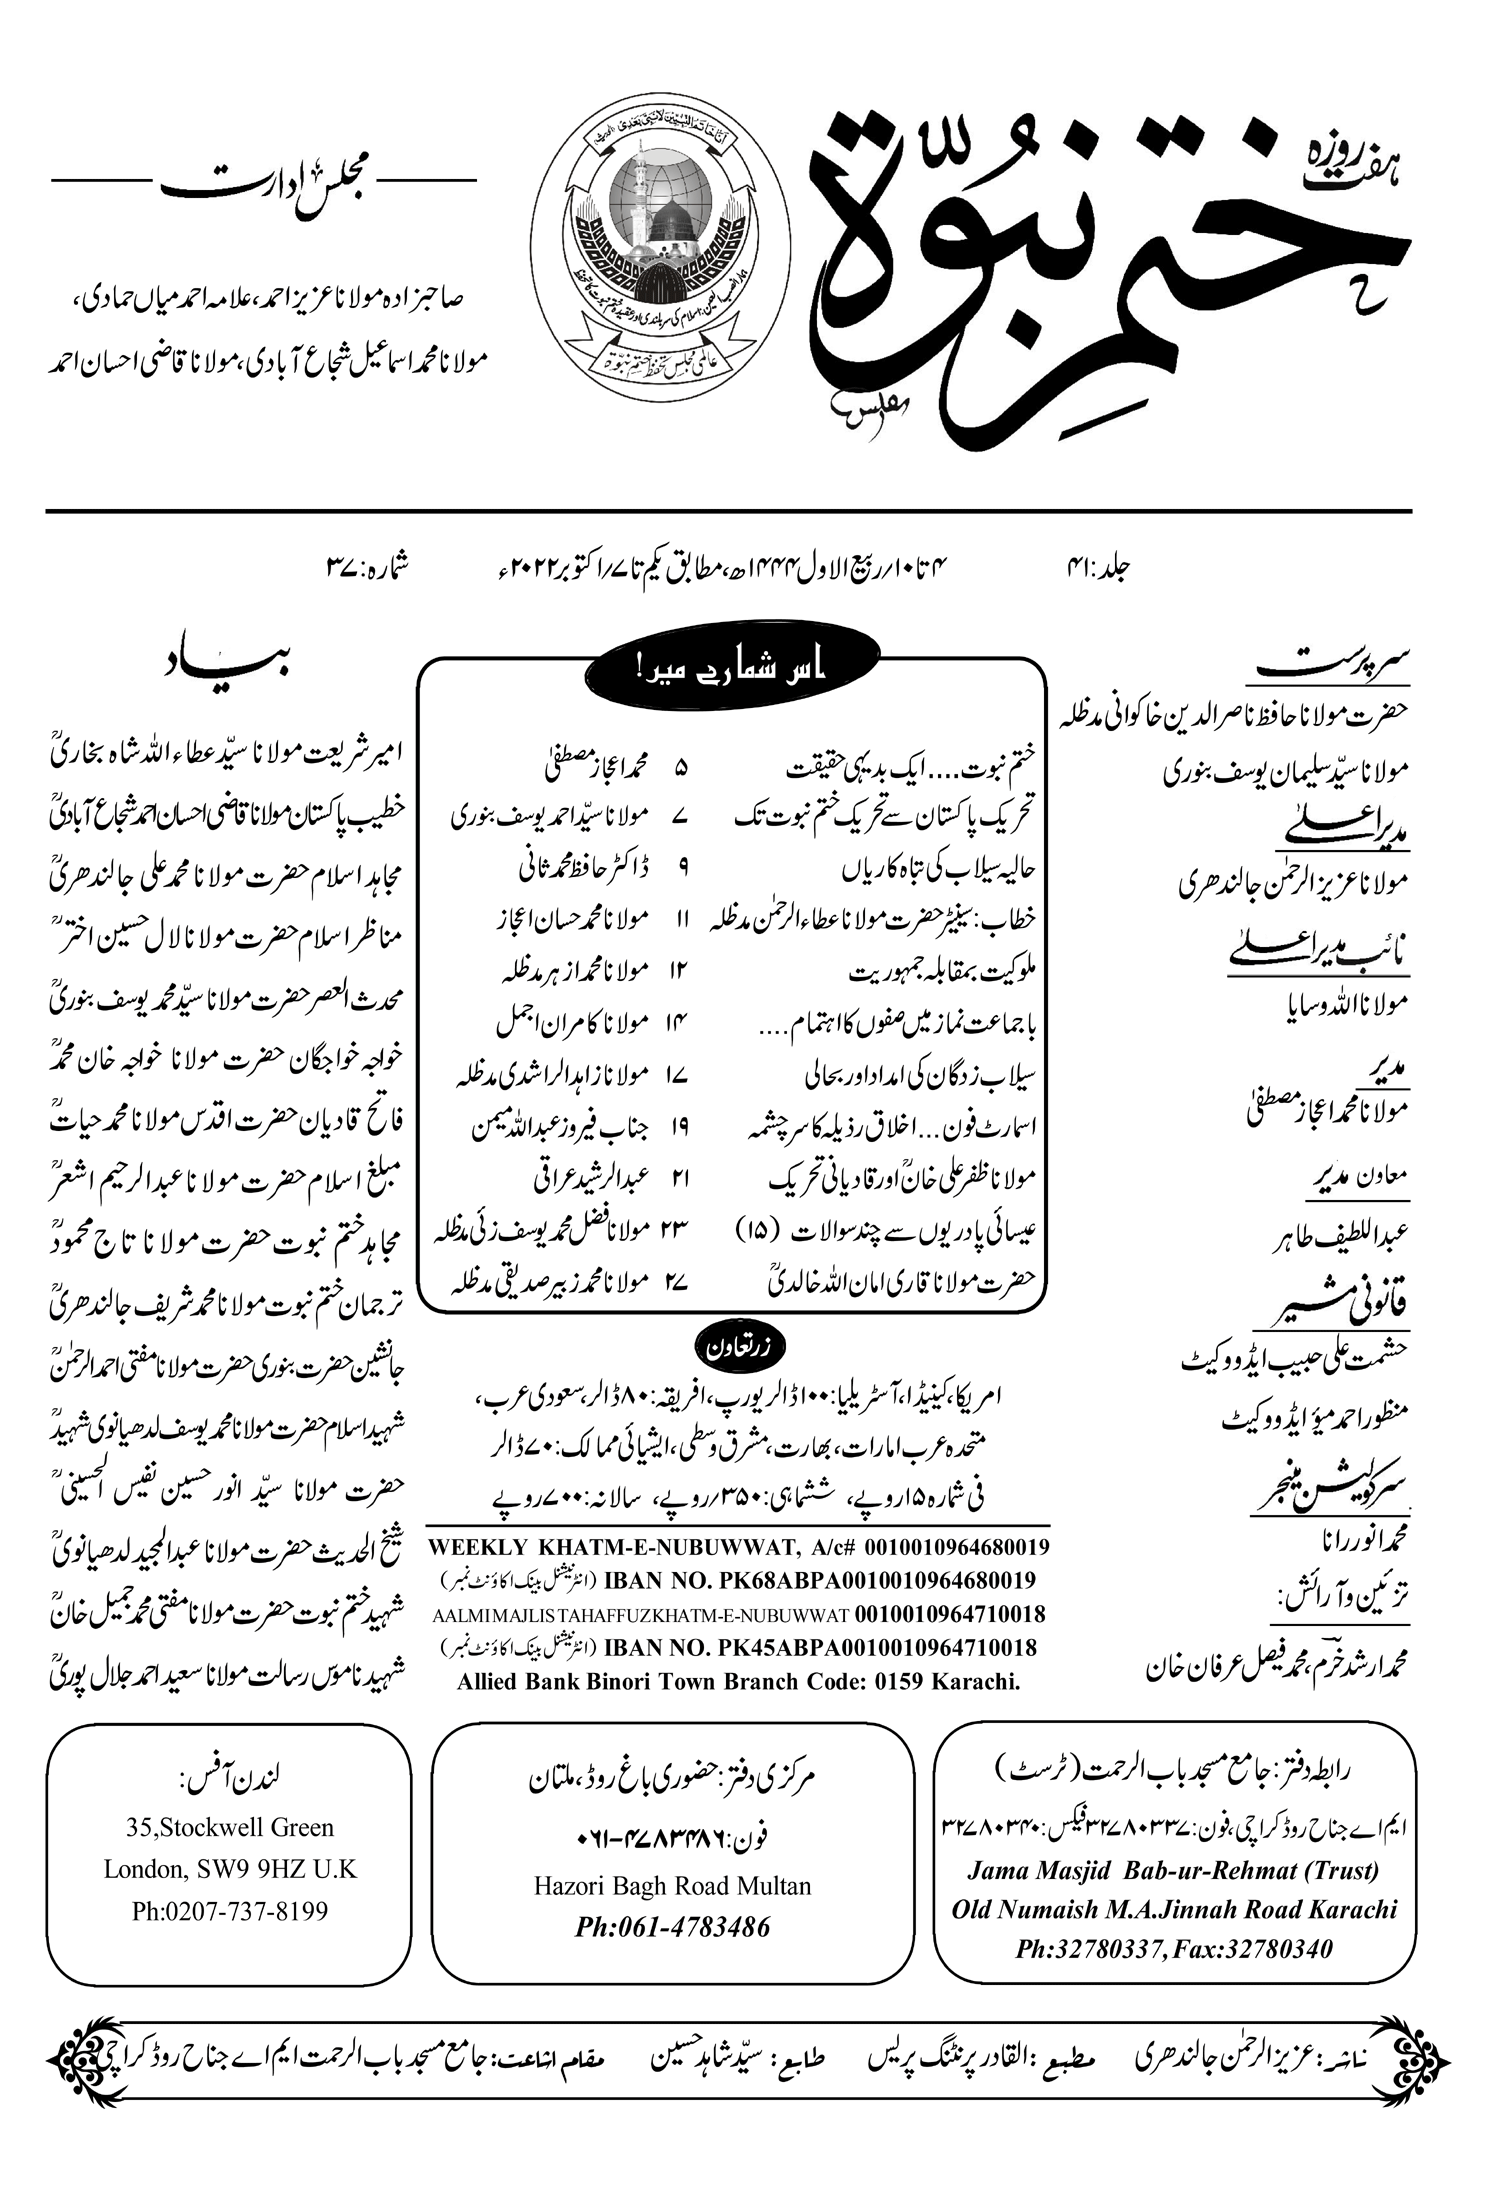 ہفت روزہ
ختم نبوّۃ
اَنَا خَاتَمُ النَّبِیّٖنَ لَا نَبِیَّ بَعْدِی
ہمارا نصب العین: اسلام کی سربلندی اور عقیدہ ختم نبوت کا تحفظ
عالمی مجلس تحفظ ختم نبوّۃ
مجلس ادارت
صاحبزادہ مولانا عزیز احمد، علامہ احمد میاں حمادی،
مولانا محمد اسماعیل شجاع آبادی، مولانا قاضی احسان احمد
جلد: ۴۱
۴ تا ۱۰؍ ربیع الاول ۱۴۴۴ھ، مطابق یکم تا ۷؍ اکتوبر ۲۰۲۲ء
شمارہ: ۳۷
سرپرست
حضرت مولانا حافظ ناصر الدین خاکوانی مدظلہ
مولانا سیّد سلیمان یوسف بنوری
مدیر اعلیٰ
مولانا عزیز الرحمٰن جالندھری
نائب مدیر اعلیٰ
مولانا اللہ وسایا
مدیر
مولانا محمد اعجاز مصطفیٰ
معاون مدیر
عبداللطیف طاہر
قانونی مشیر
حشمت علی حبیب ایڈووکیٹ
منظور احمد میؤ ایڈووکیٹ
سرکولیشن مینجر
محمد انور رانا
تزئین و آرائش:
محمد ارشد خرم، محمد فیصل عرفان خان
اس شمارے میں!
ختم نبوت.... ایک بدیہی حقیقت ۵ محمد اعجاز مصطفیٰ
تحریک پاکستان سے تحریک ختم نبوت تک ۷ مولانا سیّد احمد یوسف بنوری
حالیہ سیلاب کی تباہ کاریاں ۹ ڈاکٹر حافظ محمد ثانی
خطاب: سینیٹر حضرت مولانا عطاء الرحمٰن مدظلہ ۱۱ مولانا محمد حسان اعجاز
ملوکیت بمقابلہ جمہوریت ۱۲ مولانا محمد ازہر مدظلہ
باجماعت نماز میں صفوں کا اہتمام .... ۱۴ مولانا کامران اجمل
سیلاب زدگان کی امداد اور بحالی ۱۷ مولانا زاہد الراشدی مدظلہ
اسمارٹ فون... اخلاق رذیلہ کا سرچشمہ ۱۹ جناب فیروز عبداللہ میمن
مولانا ظفر علی خانؒ اور قادیانی تحریک ۲۱ عبدالرشید عراقی
عیسائی پادریوں سے چند سوالات (۱۵) ۲۳ مولانا فضل محمد یوسف زئی مدظلہ
حضرت مولانا قاری امان اللہ خالدیؒ ۲۷ مولانا محمد زبیر صدیقی مدظلہ
زرتعاون
امریکا، کینیڈا، آسٹریلیا: ۱۰۰ ڈالر یورپ، افریقہ: ۸۰ ڈالر، سعودی عرب،
متحدہ عرب امارات، بھارت، مشرق وسطی، ایشیائی ممالک: ۷۰ ڈالر
فی شمارہ ۱۵ روپے، ششماہی: ۳۵۰؍ روپے، سالانہ: ۷۰۰ روپے
WEEKLY KHATM-E-NUBUWWAT, A/c# 0010010964680019
IBAN NO. PK68ABPA0010010964680019 (انٹرنیشنل بینک اکاؤنٹ نمبر)
AALMI MAJLIS TAHAFFUZ KHATM-E-NUBUWWAT 0010010964710018
IBAN NO. PK45ABPA0010010964710018 (انٹرنیشنل بینک اکاؤنٹ نمبر)
Allied Bank Binori Town Branch Code: 0159 Karachi.
بیاد
امیر شریعت مولانا سیّد عطاء اللہ شاہ بخاریؒ
خطیب پاکستان مولانا قاضی احسان احمد شجاع آبادیؒ
مجاہد اسلام حضرت مولانا محمد علی جالندھریؒ
مناظر اسلام حضرت مولانا لال حسین اخترؒ
محدث العصر حضرت مولانا سیّد محمد یوسف بنوریؒ
خواجہ خواجگان حضرت مولانا خواجہ خان محمدؒ
فاتح قادیان حضرت اقدس مولانا محمد حیاتؒ
مبلغ اسلام حضرت مولانا عبدالرحیم اشعرؒ
مجاہد ختم نبوت حضرت مولانا تاج محمودؒ
ترجمان ختم نبوت مولانا محمد شریف جالندھریؒ
جانشین حضرت بنوری حضرت مولانا مفتی احمد الرحمٰنؒ
شہید اسلام حضرت مولانا محمد یوسف لدھیانوی شہیدؒ
حضرت مولانا سیّد انور حسین نفیس الحسینیؒ
شیخ الحدیث حضرت مولانا عبدالمجید لدھیانویؒ
شہید ختم نبوت حضرت مولانا مفتی محمد جمیل خانؒ
شہید ناموس رسالت مولانا سعید احمد جلال پوریؒ
رابطہ دفتر: جامع مسجد باب الرحمت (ٹرسٹ)
ایم اے جناح روڈ کراچی، فون: ۳۲۷۸۰۳۳۷ فیکس: ۳۲۷۸۰۳۴۰
Jama Masjid Bab-ur-Rehmat (Trust)
Old Numaish M.A.Jinnah Road Karachi
Ph:32780337, Fax:32780340
مرکزی دفتر: حضوری باغ روڈ، ملتان
فون: ۰۶۱-۴۷۸۳۴۸۶
Hazori Bagh Road Multan
Ph:061-4783486
لندن آفس:
35,Stockwell Green
London, SW9 9HZ U.K
Ph:0207-737-8199
ناشر: عزیز الرحمٰن جالندھری مطبع: القادر پرنٹنگ پریس طابع: سیّد شاہد حسین مقام اشاعت: جامع مسجد باب الرحمت ایم اے جناح روڈ کراچی